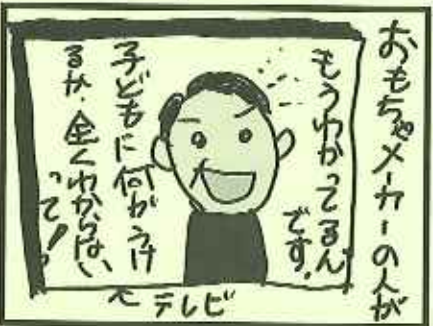 おもちゃメーカーの人が
もうわかってるん
です。
子どもに何がうけ
るか、全くわからない
って!
テレビ